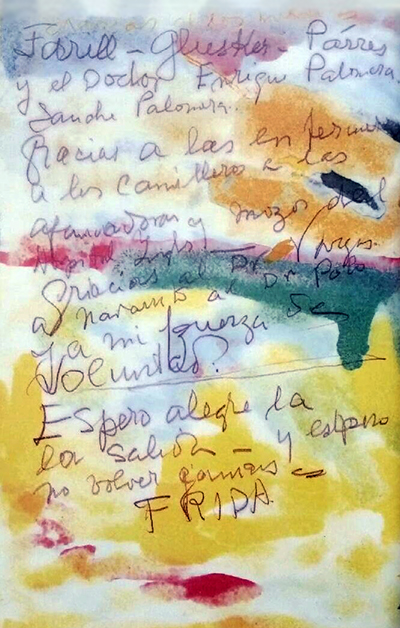 Farill - Glusker - Párres
y el Doctor Enrique Palomera
Sanche Palomera.
Gracias a las enfermeras
a los camilleros a las
afanadoras y mozos del
Hospital Inglés - 
Gracias al Dr Vargas
a Navarro al Dr Polo
y a mi fuerza de
voluntad.
Espero alegre la
la salida - y espero
no volver jamás -
FRIDA